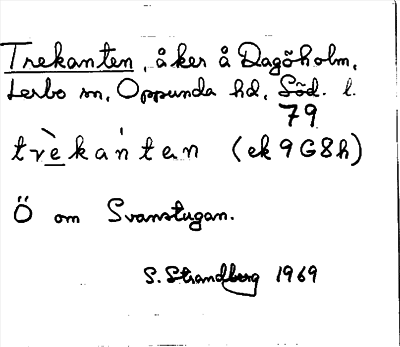 Trekanten, åker å Dagöholm,
Lerbo sn, Oppunda hd, Söd. l.
79
trèkań tan (ek 9 G8h)
Ö om Svanstugan.
S. Strandberg 1969